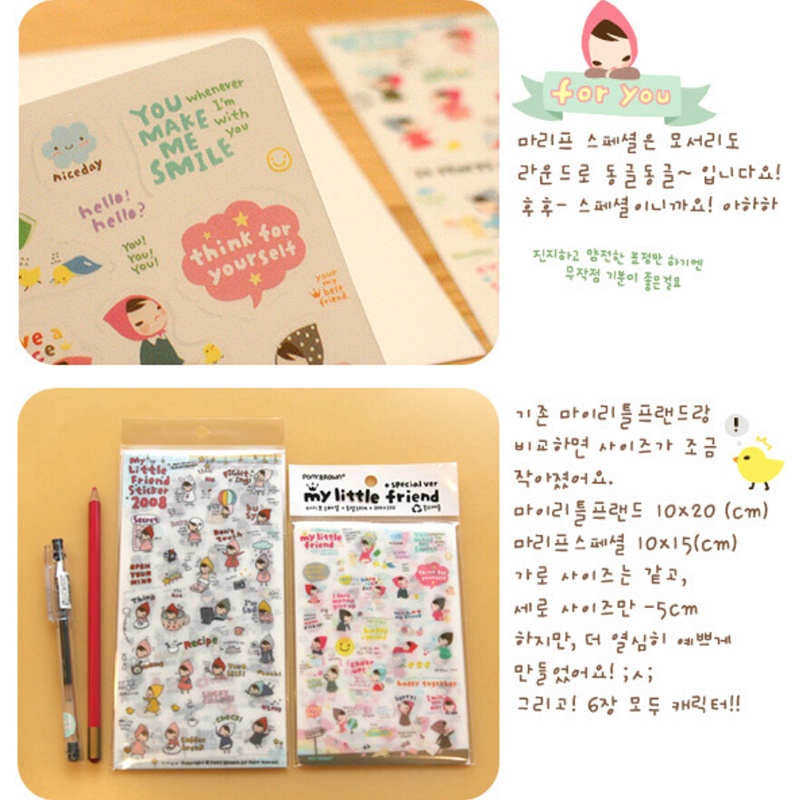 for you
마리프 스페셜은 모서리도
라운드로 동글동글~ 입니다요!
후후- 스페셜이니까요! 아하하
진지하고 얌전한 표정만 하기엔
무작정 기분이 좋은걸요
niceday
YOU
MAKE
ME
SMILE
whenever
I'm
with
you
hello!
hello?
You!
You!
You!
think for
yourself
your
my
best
friend
기존 마이리틀프랜드랑
비교하면 사이즈가 조금
작아졌어요.
마이리틀프랜드 10x20 (cm)
마리프스페셜 10x15(cm)
가로 사이즈는 같고,
세로 사이즈만 -5cm
하지만, 더 열심히 예쁘게
만들었어요! ;ㅅ;
그리고! 6장 모두 캐릭터!!
!
My
Little
Friend
Sticker
2008
Secret
Don't
touch
OPEN
YOUR
MIND
Think
Recipe
LUCKY
CHANCE
check!
Coffee
break
PONYBROWN
special ver
my little friend
my little
friend
think for
yourself
cheer
up!
happy together